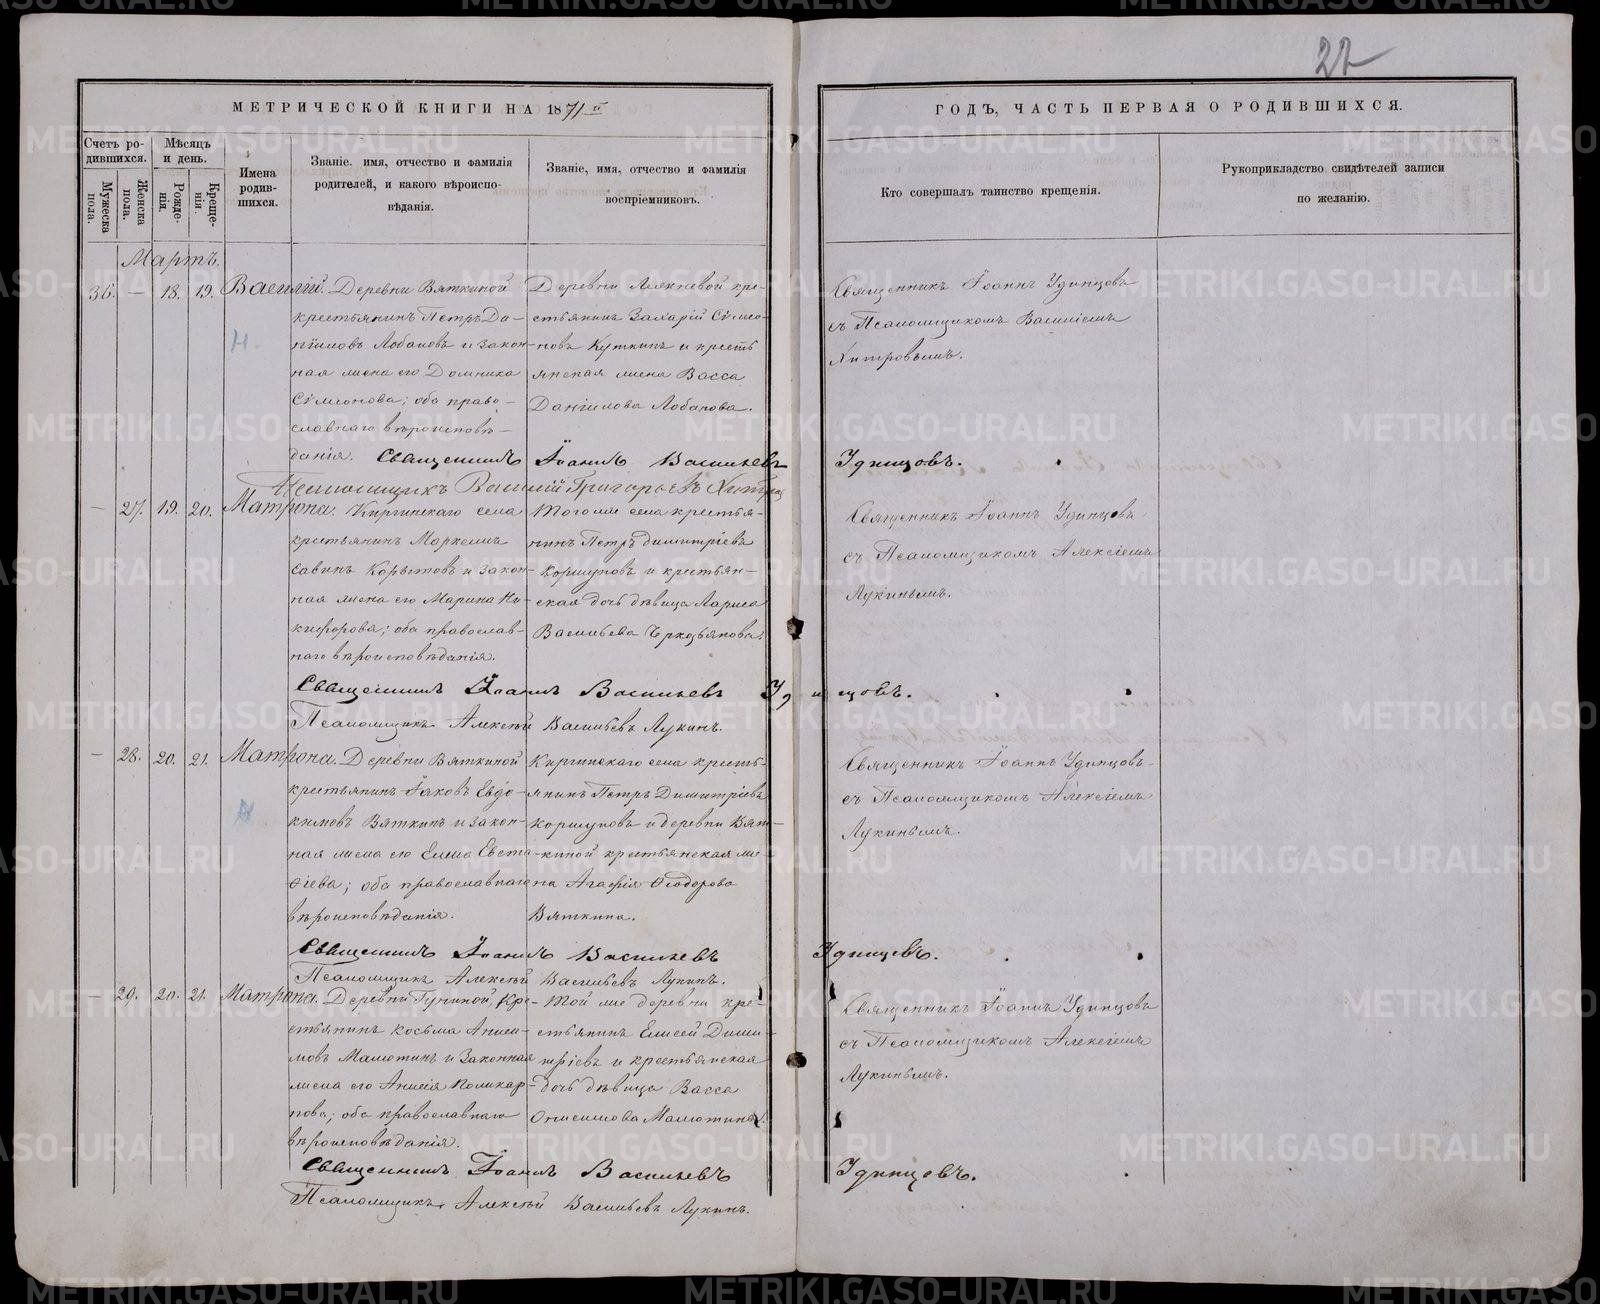 22
МЕТРИЧЕСКОЙ КНИГИ НА 1871й
ГОДЪ, ЧАСТЬ ПЕРВАЯ О РОДИВШИХСЯ.
Счетъ ро-
дившихся.
Мужеска
пола.
Женска
пола.
Мѣсяцъ
и день.
Рожде-
нія.
Креще-
нія.
Имена
родив-
шихся.
Званіе. имя, отчество и фамилія
родителей, и какого вѣроиспо-
вѣданія.
Званіе, имя, отчество и фамилія
воспріемниковъ.
Кто совершалъ таинство крещенія.
Рукоприкладство свидѣтелей записи
по желанію.
Мартъ.
36. — 18. 19. Василій.
Деревни Вяткиной
крестьянинъ Петръ Да-
ніиловъ Лобановъ и закон-
ная жена его Домника
Сѵмеонова; оба право-
славнаго вѣроисповѣ-
данія.
Деревни кре-
стьянинъ Захарій Сѵмео-
новъ Куткинъ и кресть
янская жена Васса
Даніилова Лобанова.
Священникъ Іоаннъ Удинцовъ
съ Псаломщикомъ Василіемъ
Хитровымъ.
Священникъ Іоаннъ Васильевъ Удинцовъ.
Псаломщикъ Василій Григорьевъ
— 27. 19. 20. Матрона.
Киргинскаго села
крестьянинъ Маркеллъ
Савинъ Корытовъ и закон-
ная жена его Марина Ни-
кифорова; оба православ-
наго вѣроисповѣданія.
Того же села крестья-
нинъ Петръ Димитріевъ
Коршуновъ и крестьян-
ская дочь дѣвица Лариса
Васильева
Священникъ Іоаннъ Удинцовъ
съ Псаломщикомъ Алексіемъ
Лукинымъ.
Священникъ Іоаннъ Васильевъ Удинцовъ.
Псаломщикъ Алексѣй Васильевъ Лукинъ.
— 28. 20. 21. Матрона.
Деревни Вяткиной
крестьянинъ Іаковъ Евдо-
кимовъ Вяткинъ и закон-
ная жена его Елена Евста-
ѳіева; оба православнаго
вѣроисповѣданія.
Киргинскаго села кресть-
янинъ Петръ Димитріевъ
Коршуновъ и деревни Вят-
киной крестьянская же-
на Агафія Ѳеодорова
Вяткина.
Священникъ Іоаннъ Удинцовъ
съ Псаломщикомъ Алексіемъ
Лукинымъ.
Священникъ Іоаннъ Васильевъ Удинцевъ.
Псаломщикъ Алексѣй Васильевъ Лукинъ.
— 29. 20. 21. Матрона.
Деревни Гуниной, кре-
стьянинъ Косьма Аниси-
мовъ Малютинъ и законная
жена его Анисія Поликар-
пова; оба православнаго
вѣроисповѣданія.
Той же деревни кре-
стьянинъ Елисей Дими-
тріевъ и крестьянская
дочь дѣвица Васса
Онисимова Малютина.
Священникъ Іоаннъ Удинцовъ
съ Псаломщикомъ Алексіемъ
Лукинымъ.
Священникъ Іоаннъ Васильевъ Удинцовъ.
Псаломщикъ Алексѣй Васильевъ Лукинъ.
METRIKI.GASO-URAL.RU